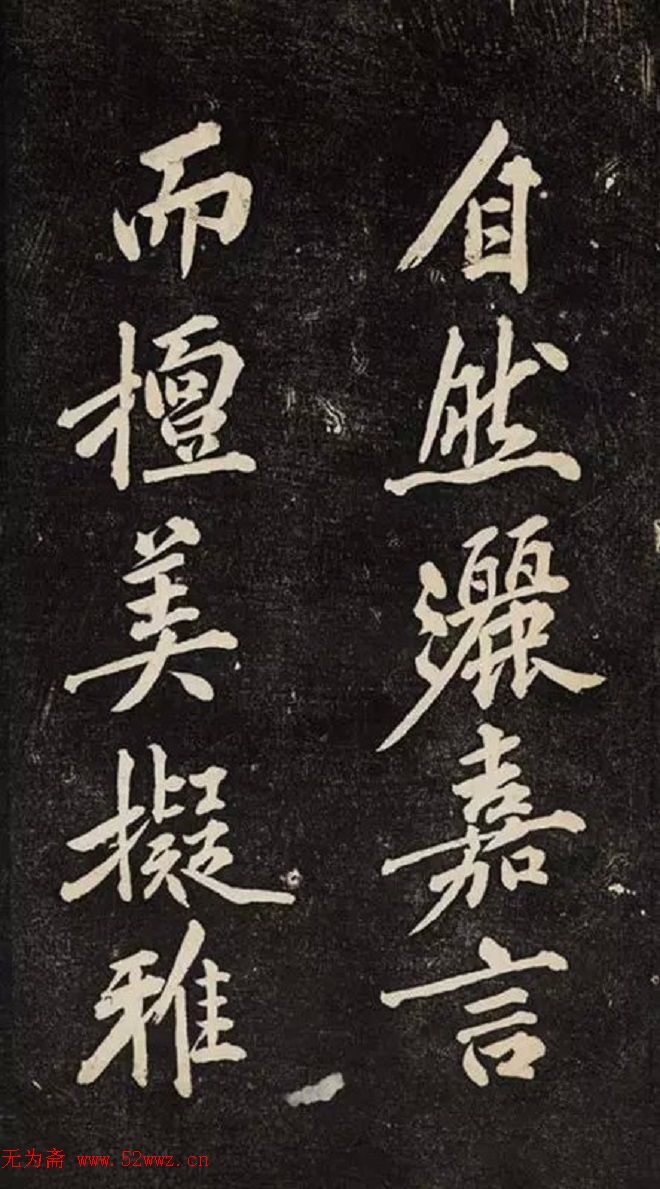 自然灑嘉言
而擅美擬雅
无为斋 www.52wwz.cn